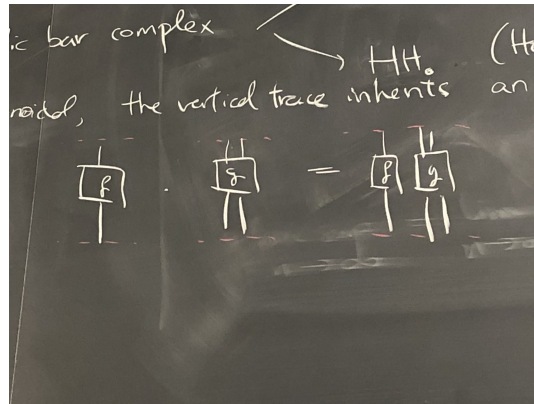 ic bar complex
HH. (Ho
noidal, the vertical trace inherits an
f . g = f g